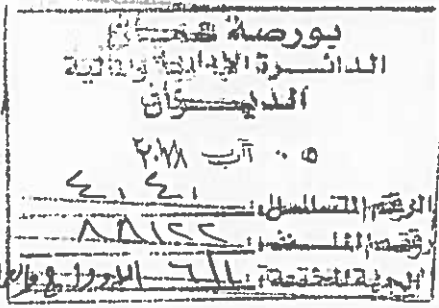 بورصة عمان
الدائرة الإدارية والمالية
الديوان
٠٥ آب ٢٠١٨
الرقم المتسلسل:
رقم الملف: ٨٨١٢٢
الجهة المختصة: